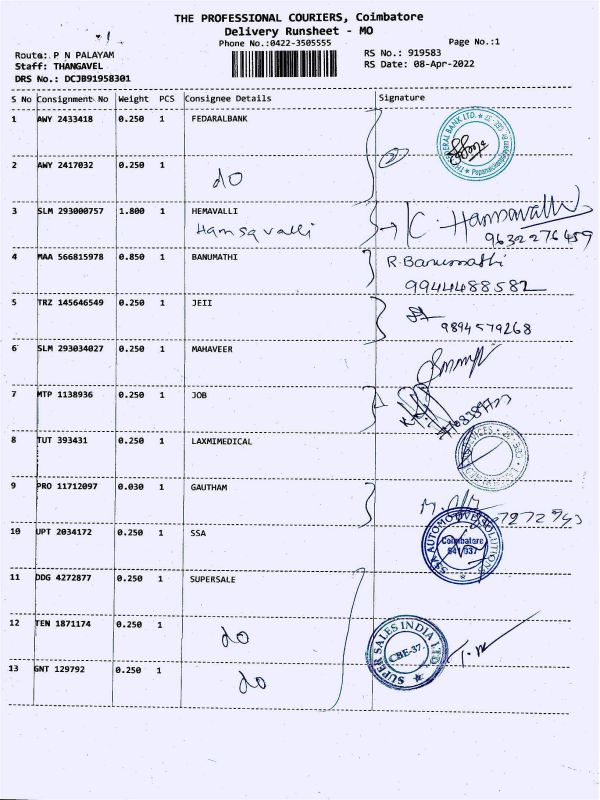 THE PROFESSIONAL COURIERS, Coimbatore
Delivery Runsheet - MO
Phone No.:0422-3505555
Page No.:1
Route: P N PALAYAM
RS No.: 919583
Staff: THANGAVEL
RS Date: 08-Apr-2022
DRS No.: DCJB91958301
S No Consignment No Weight PCS Consignee Details Signature
1 AWY 2433418 0.250 1 FEDARALBANK
2 AWY 2417032 0.250 1 do
3 SLM 293000757 1.800 1 HEMAVALLI
Hamsavalli
C. Hamsavalli
9632276459
4 MAA 566815978 0.850 1 BANUMATHI R.Banumathi
9944488582
5 TRZ 145646549 0.250 1 JEII
9894579268
6 SLM 293034027 0.250 1 MAHAVEER
7 MTP 1138936 0.250 1 JOB
8 TUT 393431 0.250 1 LAXMIMEDICAL
9 PRO 11712097 0.030 1 GAUTHAM
10 UPT 2034172 0.250 1 SSA
SSA AUTOMOTIVE SOLUTIONS
Coimbatore
641 037
11 DDG 4272877 0.250 1 SUPERSALE
12 TEN 1871174 0.250 1 do
SUPER SALES INDIA LTD
CBE-37.
13 GNT 129792 0.250 1 do